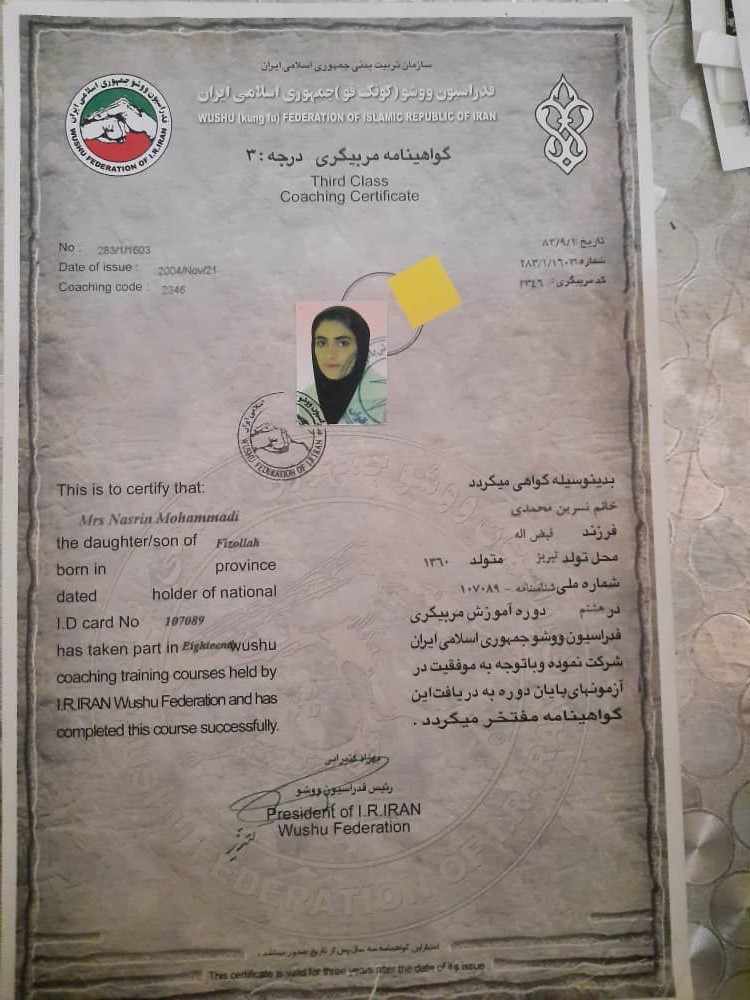 سازمان تربیت بدنی جمهوری اسلامی ایران
فدراسیون ووشو (کونگ فو) جمهوری اسلامی ایران
WUSHU (kung fu) FEDERATION OF ISLAMIC REPUBLIC OF IRAN
فدراسیون ووشو جمهوری اسلامی ایران
WUSHU FEDERATION OF I.R.IRAN
گواهینامه مربیگری درجه : ۳
Third Class
Coaching Certificate
No : 283/1/1603
Date of issue : 2004/Nov/21
Coaching code : 2346
تاریخ: ۸۳/۹/۱
شماره: ۲۸۳/۱/۱۶۰۳
کد مربیگری: ۲۳۴۶
WUSHU FEDERATION OF I.R.IRAN
This is to certify that:
Mrs Nasrin Mohammadi
the daughter/son of Fizollah
born in province
dated holder of national
I.D card No 107089
has taken part in Eighteend wushu
coaching training courses held by
I.R.IRAN Wushu Federation and has
completed this course successfully.
بدینوسیله گواهی میگردد
خانم نسرین محمدی
فرزند فیض اله
محل تولد تبریز متولد ۱۳۶۰
شماره ملی شناسنامه - ۱۰۷۰۸۹
در هشتم دوره آموزش مربیگری
فدراسیون ووشو جمهوری اسلامی ایران
شرکت نموده و باتوجه به موفقیت در
آزمونهای پایان دوره به دریافت این
گواهینامه مفتخر میگردد .
رئیس فدراسیون ووشو
President of I.R.IRAN
Wushu Federation
اعتبار این گواهینامه سه سال پس از تاریخ صدور میباشد .
This certificate is valid for three years after the date of its issue .